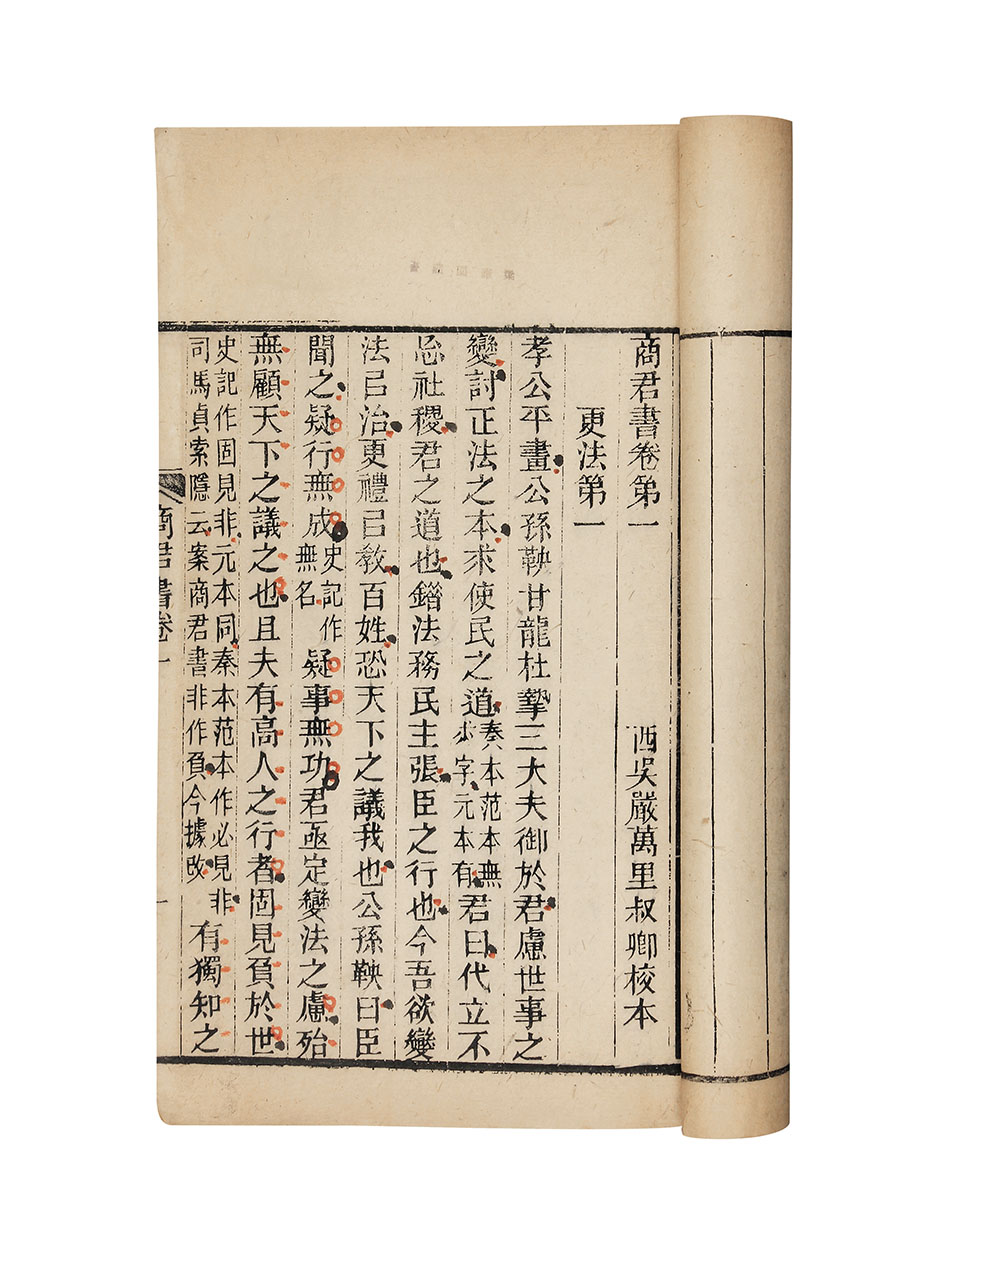 商君書卷第一　西吳嚴萬里叔卿校本
更法第一
孝公平畫公孫鞅甘龍杜摯三大夫御於君慮世事之
變討正法之本求使民之道秦本范本無此字元本有君曰代立不
忘社稷君之道也錯法務民主張臣之行也今吾欲變
法㠯治更禮㠯敎百姓恐天下之議我也公孫鞅曰臣
聞之疑行無成史記作無名疑事無功君亟定變法之慮殆
無顧天下之議之也且夫有高人之行者固見負於世
史記作固見非元本同秦本范本作必見非司馬貞索隱云案商君書非作負今據改有獨知之
商君書卷一　一